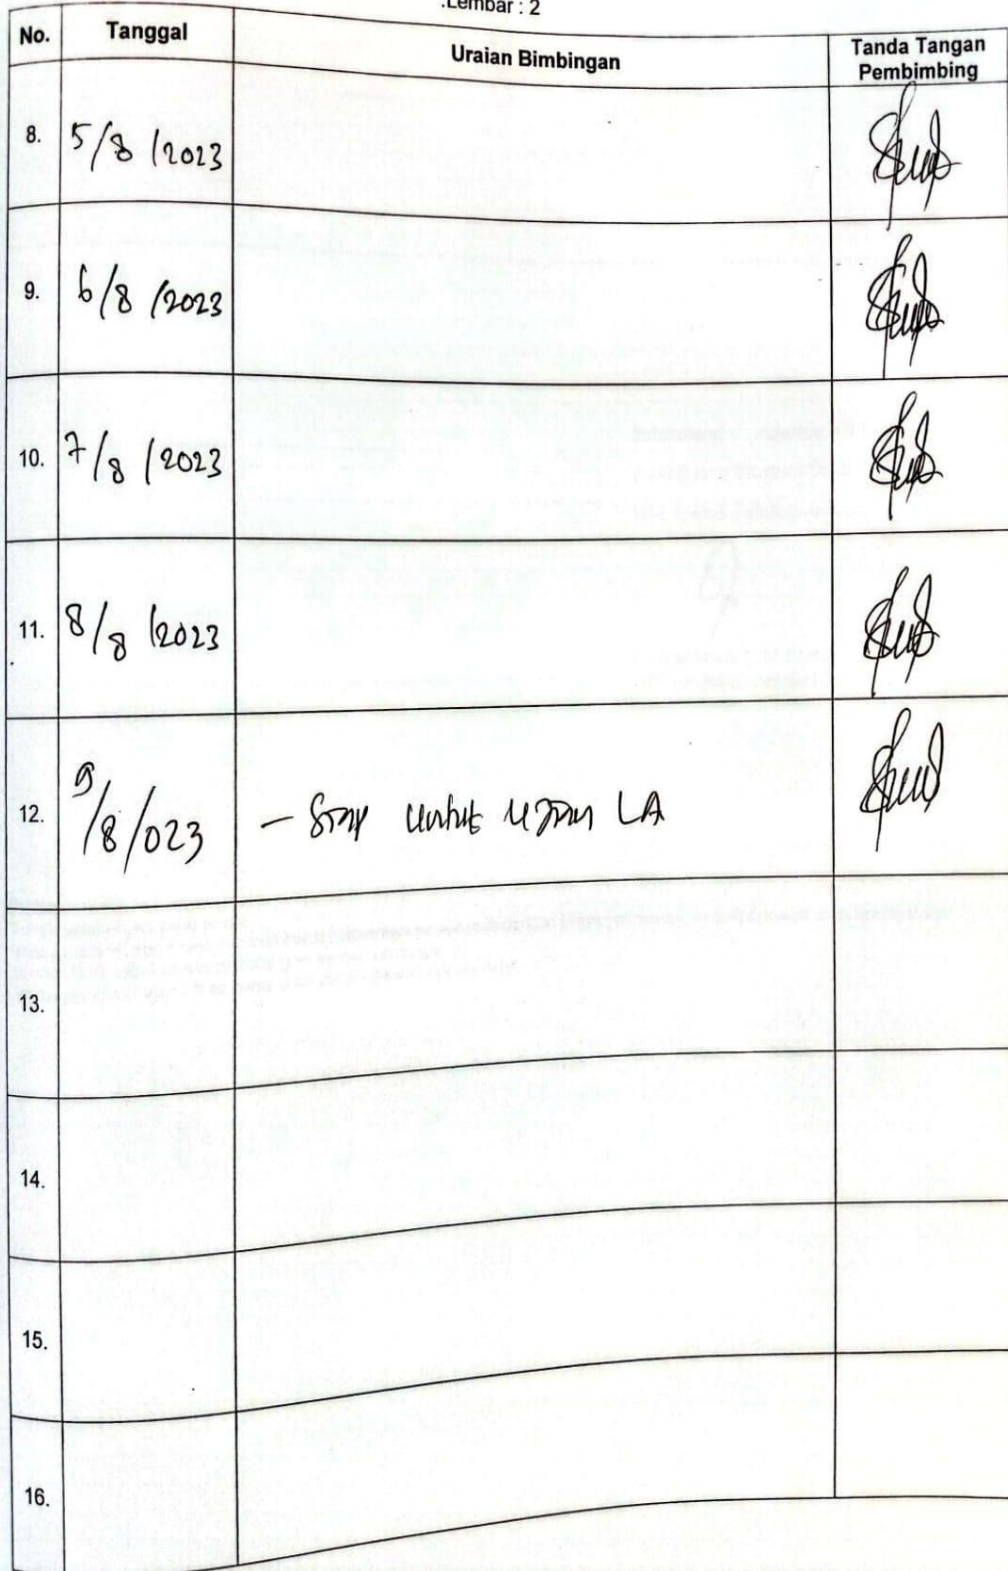 .Lembar : 2
No. Tanggal Uraian Bimbingan Tanda Tangan
Pembimbing
8. 5/8/2023
9. 6/8/2023
10. 7/8/2023
11. 8/8/2023
12. 9/8/023 - Siap untuk ujian LA
13.
14.
15.
16.